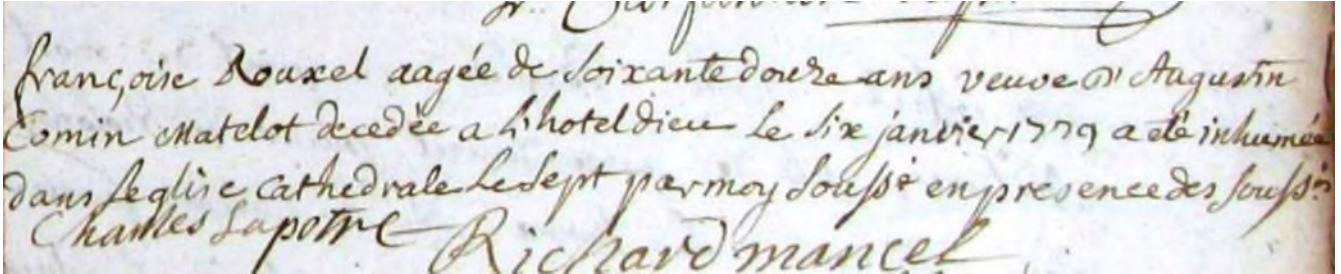 françoise Rouxel aagée de soixante douze ans veuve d'Augustin
Comin Matelot decedée a L'hotel dieu Le six janvier 1779 a eté inhumée
dans l'eglise Cathedrale Le sept par moy souss.é en presence des souss.és
Charles Lapotre Richard mancel